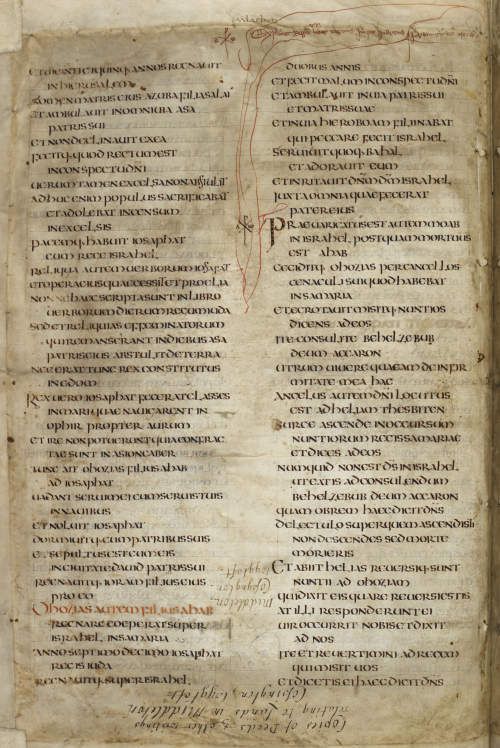 ET UIGINTI ET QUINQ· ANNOS REGNAUIT
IN HIERUSALEM
NOMEN MATRIS EIUS AZUBA FILIA SALAI
ET AMBULAUIT IN OMNI UIA ASA
PATRIS SUI
ET NON DECLINAUIT EX EA
FECITQ· QUOD RECTUM EST
IN CONSPECTU DNI
UERUMTAMEN EXCELSA NON ABSTULIT
ADHUC ENIM POPULUS SACRIFICABAT
ET ADOLEBAT INCENSUM
IN EXCELSIS
PACEMQ· HABUIT IOSAPHAT
CUM REGE ISRAHEL
RELIQUA AUTEM UERBORUM IOSAPHAT
ET OPERA EIUS QUAE GESSIT ET PROELIA
NONNE HAEC SCRIPTA SUNT IN LIBRO
UERBORUM DIERUM REGUM IUDA
SED ET RELIQUIAS EFFEMINATORUM
QUI REMANSERANT IN DIEBUS ASA
PATRIS EIUS ABSTULIT DE TERRA
NEC ERAT TUNC REX CONSTITUTUS
IN EDOM
REX UERO IOSAPHAT FECERAT CLASSES
IN MARI QUAE NAUIGARENT IN
OPHIR PROPTER AURUM
ET IRE NON POTUERUNT QUIA CONFRAC
TAE SUNT IN ASIONGABER
TUNC AIT OHOZIAS FILIUS AHAB
AD IOSAPHAT
UADANT SERUI MEI CUM SERUIS TUIS
IN NAUIBUS
ET NOLUIT IOSAPHAT
DORMIUITQ· CUM PATRIBUS SUIS
ET SEPULTUS EST CUM EIS
IN CIUITATE DAUID PATRIS SUI
REGNAUITQ· IORAM FILIUS EIUS
PRO EO
OHOZIAS AUTEM FILIUS AHAB
REGNARE COEPERAT SUPER
ISRAHEL IN SAMARIA
ANNO SEPTIMO DECIMO IOSAPHAT
REGIS IUDA
REGNAUITQ· SUPER ISRAHEL
DUOBUS ANNIS
ET FECIT MALUM IN CONSPECTU DNI
ET AMBULAUIT IN UIA PATRIS SUI
ET MATRIS SUAE
ET IN UIA HIEROBOAM FILII NABAT
QUI PECCARE FECIT ISRAHEL
SERUIUIT QUOQ· BAHAL
ET ADORAUIT EUM
ET INRITAUIT DNM DM ISRAHEL
IUXTA OMNIA QUAE FECERAT
PATER EIUS
PRAEUARICATUS EST AUTEM MOAB
IN ISRAHEL POSTQUAM MORTUUS
EST AHAB
CECIDITQ· OHOZIAS PER CANCELLOS
CENACULI SUI QUOD HABEBAT
IN SAMARIA
ET AEGROTAUIT MISITQ· NUNTIOS
DICENS AD EOS
ITE CONSULITE BEHELZEBUB
DEUM ACCARON
UTRUM UIUERE QUEAM DE INFIR
MITATE MEA HAC
ANGELUS AUTEM DNI LOCUTUS
EST AD HELIAM THESBITEN
SURGE ASCENDE IN OCCURSUM
NUNTIORUM REGIS SAMARIAE
ET DICES AD EOS
NUMQUID NON EST DS IN ISRAHEL
UT EATIS AD CONSULENDUM
BEHELZEBUB DEUM ACCARON
QUAM OB REM HAEC DICIT DNS
DE LECTULO SUPER QUEM ASCENDISTI
NON DESCENDES SED MORTE
MORIERIS
ET ABIIT HELIAS REUERSIQ· SUNT
NUNTII AD OHOZIAM
QUI DIXIT EIS QUARE REUERSI ESTIS
AT ILLI RESPONDERUNT EI
UIR OCCURRIT NOBIS ET DIXIT
AD NOS
ITE ET REUERTIMINI AD REGEM
QUI MISIT UOS
ET DICETIS EI HAEC DICIT DNS
Middleton
Copies of Deeds & other writings
relating to Lands in Middleton